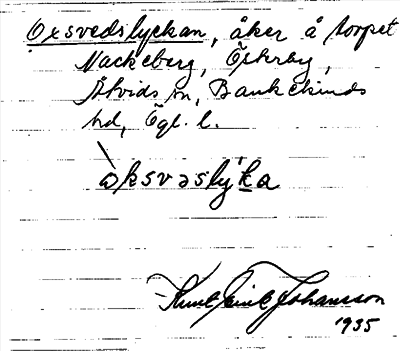 Oxsvedslyckan, åker å torpet
Nackeberg, Österby,
Åtvids sn, Bankekinds
hd, Ögl. l.
òksvəslyk̲a
Knut Erik Johansson
1935